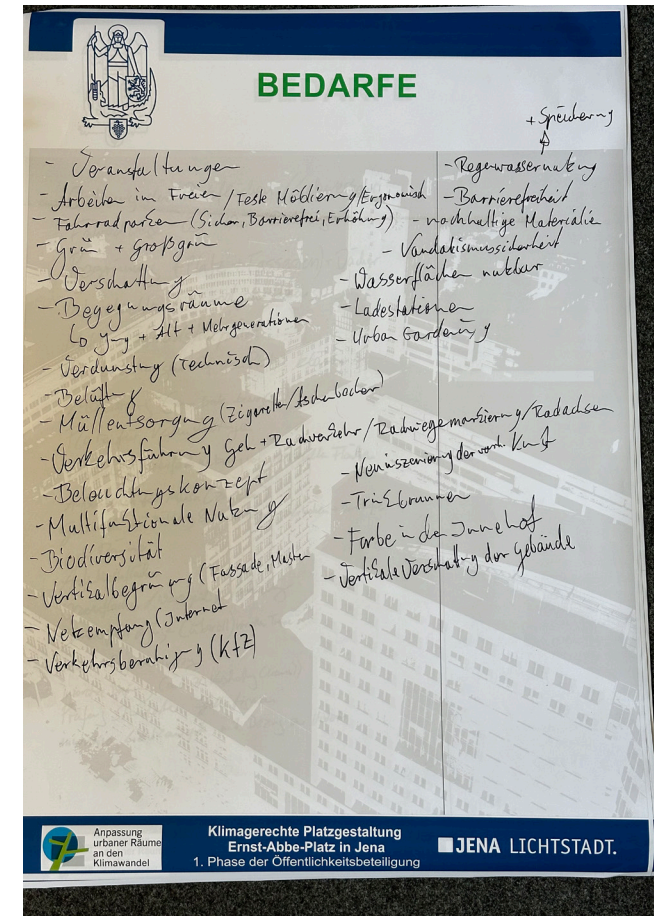 BEDARFE
+ Speicherung
- Veranstaltungen
- Arbeiten im Freien / Feste Möblierung / Ergonomisch
- Fahrradparken (Sicher, Barrierefrei, Erhöhung)
- Grün + Großgrün
- Verschattung
- Begegnungsräume
↳ Jung + Alt + Mehrgenerationen
- Verdunstung (Technisch)
- Belüftung
- Müllentsorgung (Zigaretten/Aschenbecher)
- Verkehrsführung Geh + Radverkehr / Radwegemarkierung / Radachsen
- Beleuchtungskonzept
- Multifunktionale Nutzung
- Biodiversität
- Vertikalbegrünung (Fassade, Masten
- Netzempfang (Internet
- Verkehrsberuhigung (KfZ)
- Regenwassernutzung
- Barrierefreiheit
- nachhaltige Materialie
- Vandalismussicherheit
- Wasserflächen nutzbar
- Ladestationen
- Urban Gardening
- Neuinszenierung der vorh. Kunst
- Trinkbrunnen
- Farbe in den Innenhof
- Vertikale Verschattung der Gebäude
Anpassung
urbaner Räume
an den
Klimawandel
Klimagerechte Platzgestaltung
Ernst-Abbe-Platz in Jena
1. Phase der Öffentlichkeitsbeteiligung
JENA LICHTSTADT.